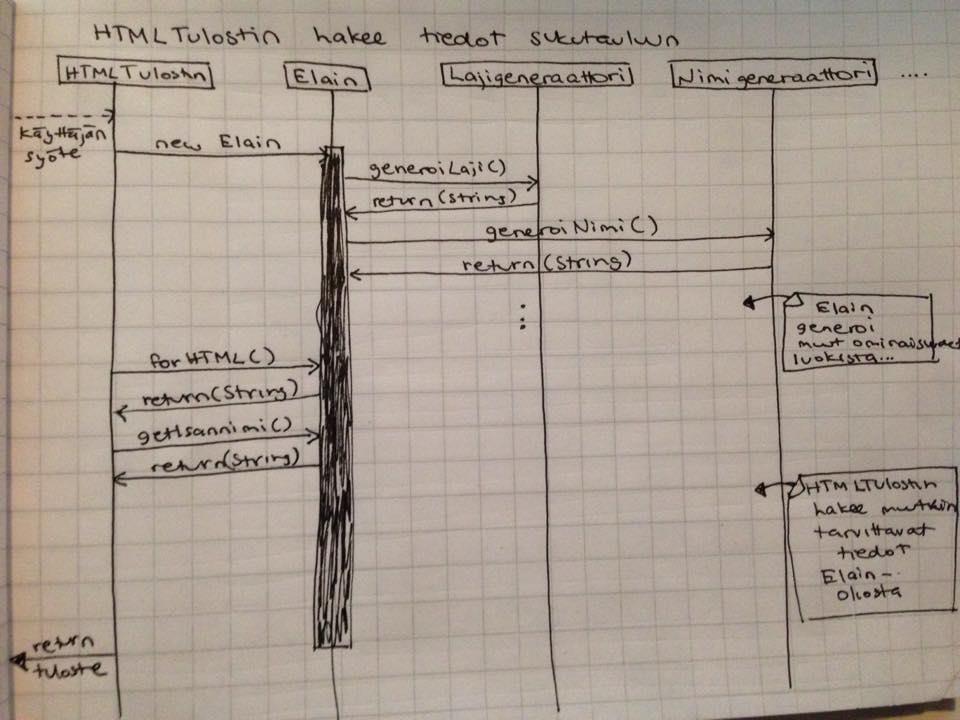 HTMLTulostin hakee tiedot sukutauluun
HTMLTulostin
Elain
Lajigeneraattori
Nimigeneraattori
....
käyttäjän
syöte
new Elain
generoiLaji()
return(String)
generoiNimi()
return(String)
Elain
generoi
muut ominaisuudet
luokista...
forHTML()
return(String)
getIsannimi()
return(String)
HTMLTulostin
hakee muutkin
tarvittavat
tiedot
Elain-
oliosta
return
tuloste